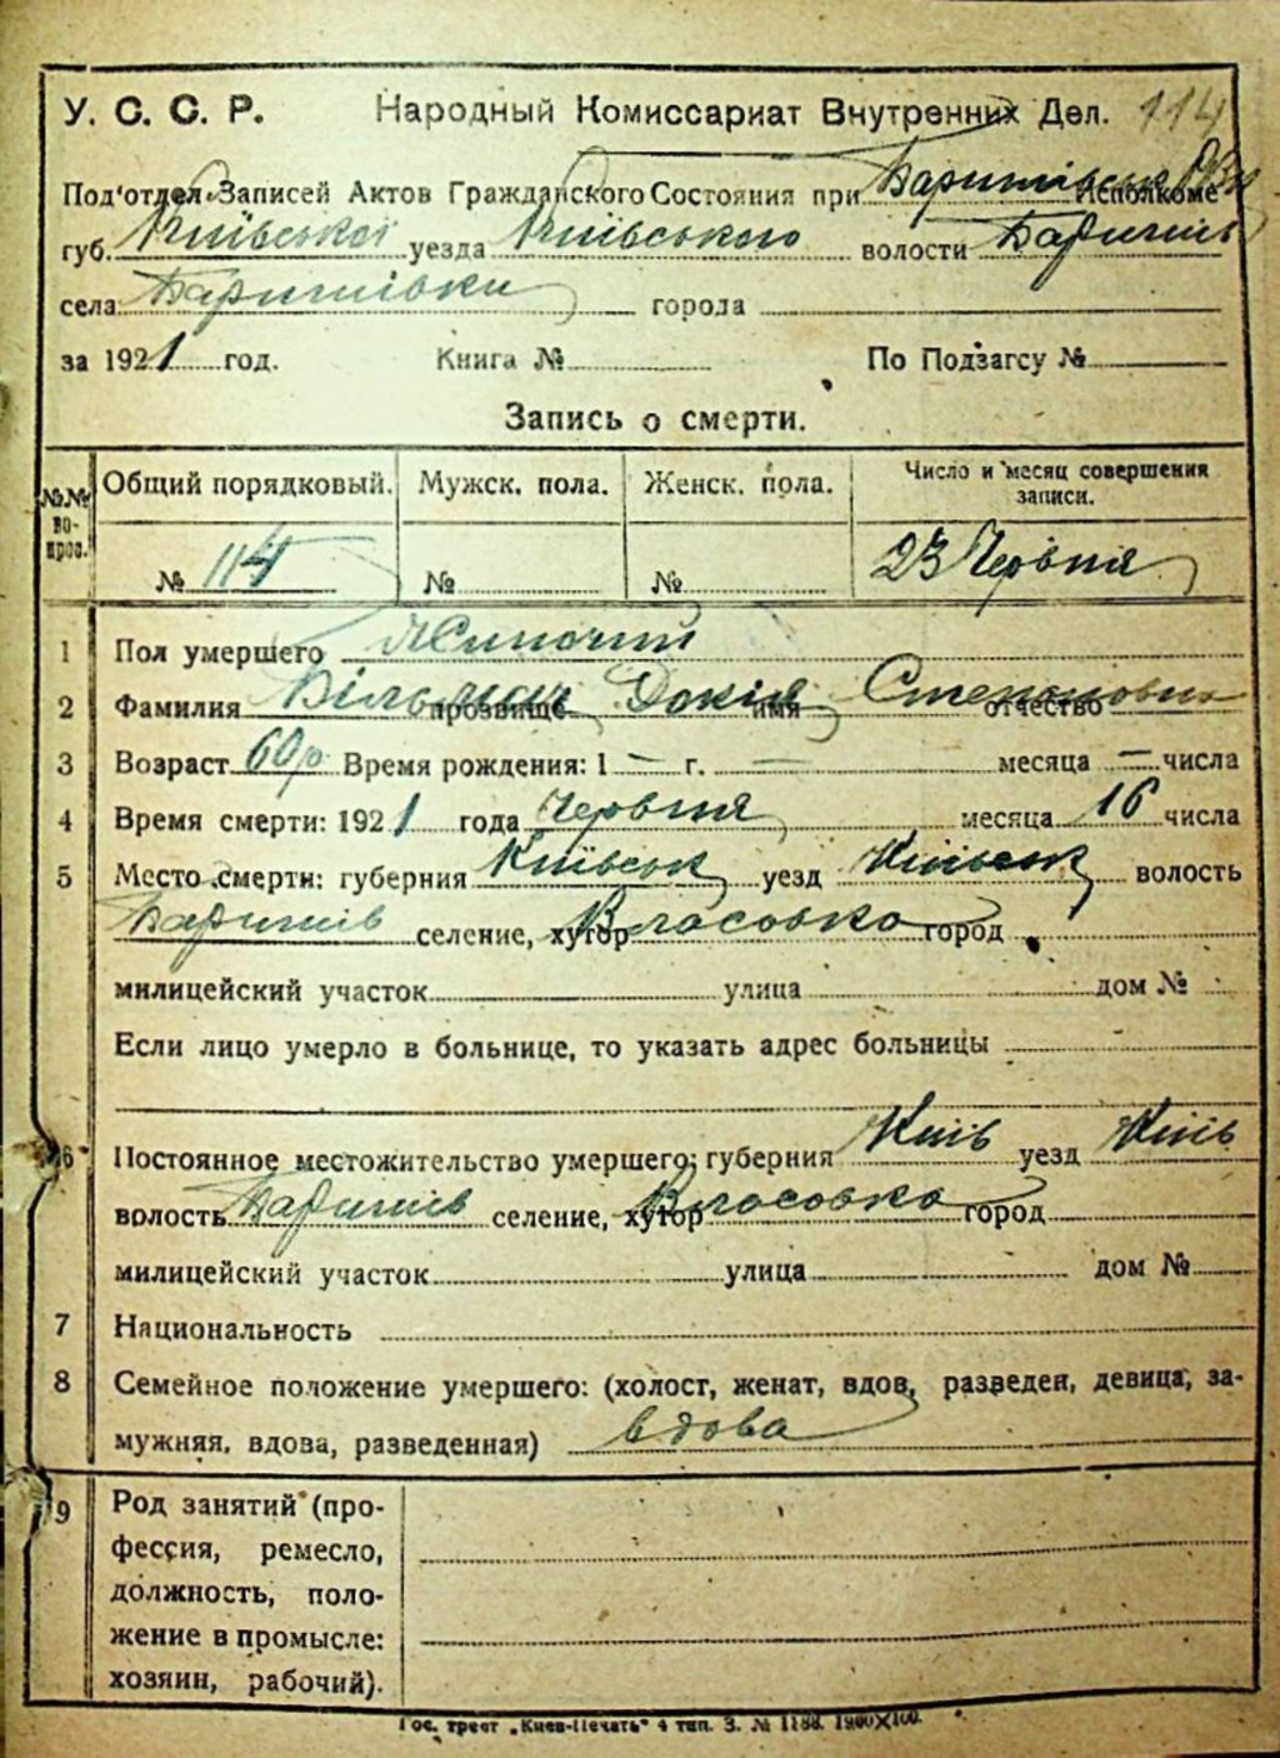 У. С. С. Р. Народный Комиссариат Внутренних Дел. 114
Под'отдел Записей Актов Гражданского Состояния при Баришівськ Исполкоме
губ. Київської уезда Київського волости Баришів
села Баришівки города
за 1921 год. Книга № По Подзагсу №
Запись о смерти.
№№ во-прос. Общий порядковый. Мужск. пола. Женск. пола. Число и месяц совершения записи.
№ 114 № № 23 Червня
1 Пол умершего Жиночий
2 Фамилия прозвище Докія имя Степановна отчество
3 Возраст 60 р Время рождения: 1 — г. — месяца — числа
4 Время смерти: 1921 года Червня месяца 16 числа
5 Место смерти: губерния Київськ уезд Київськ волость
Баришів селение, хутор Власовка город
милицейский участок улица дом №
Если лицо умерло в больнице, то указать адрес больницы
6 Постоянное местожительство умершего: губерния Київ уезд Київ
волость Баришів селение, хутор Власовка город
милицейский участок улица дом №
7 Национальность
8 Семейное положение умершего: (холост, женат, вдов, разведен, девица, за-
мужняя, вдова, разведенная) вдова
9 Род занятий (про-
фессия, ремесло,
должность, поло-
жение в промысле:
хозяин, рабочий).
Гос. трест „Киев-Печать" 4 тип. З. № 1188. 1900×100.